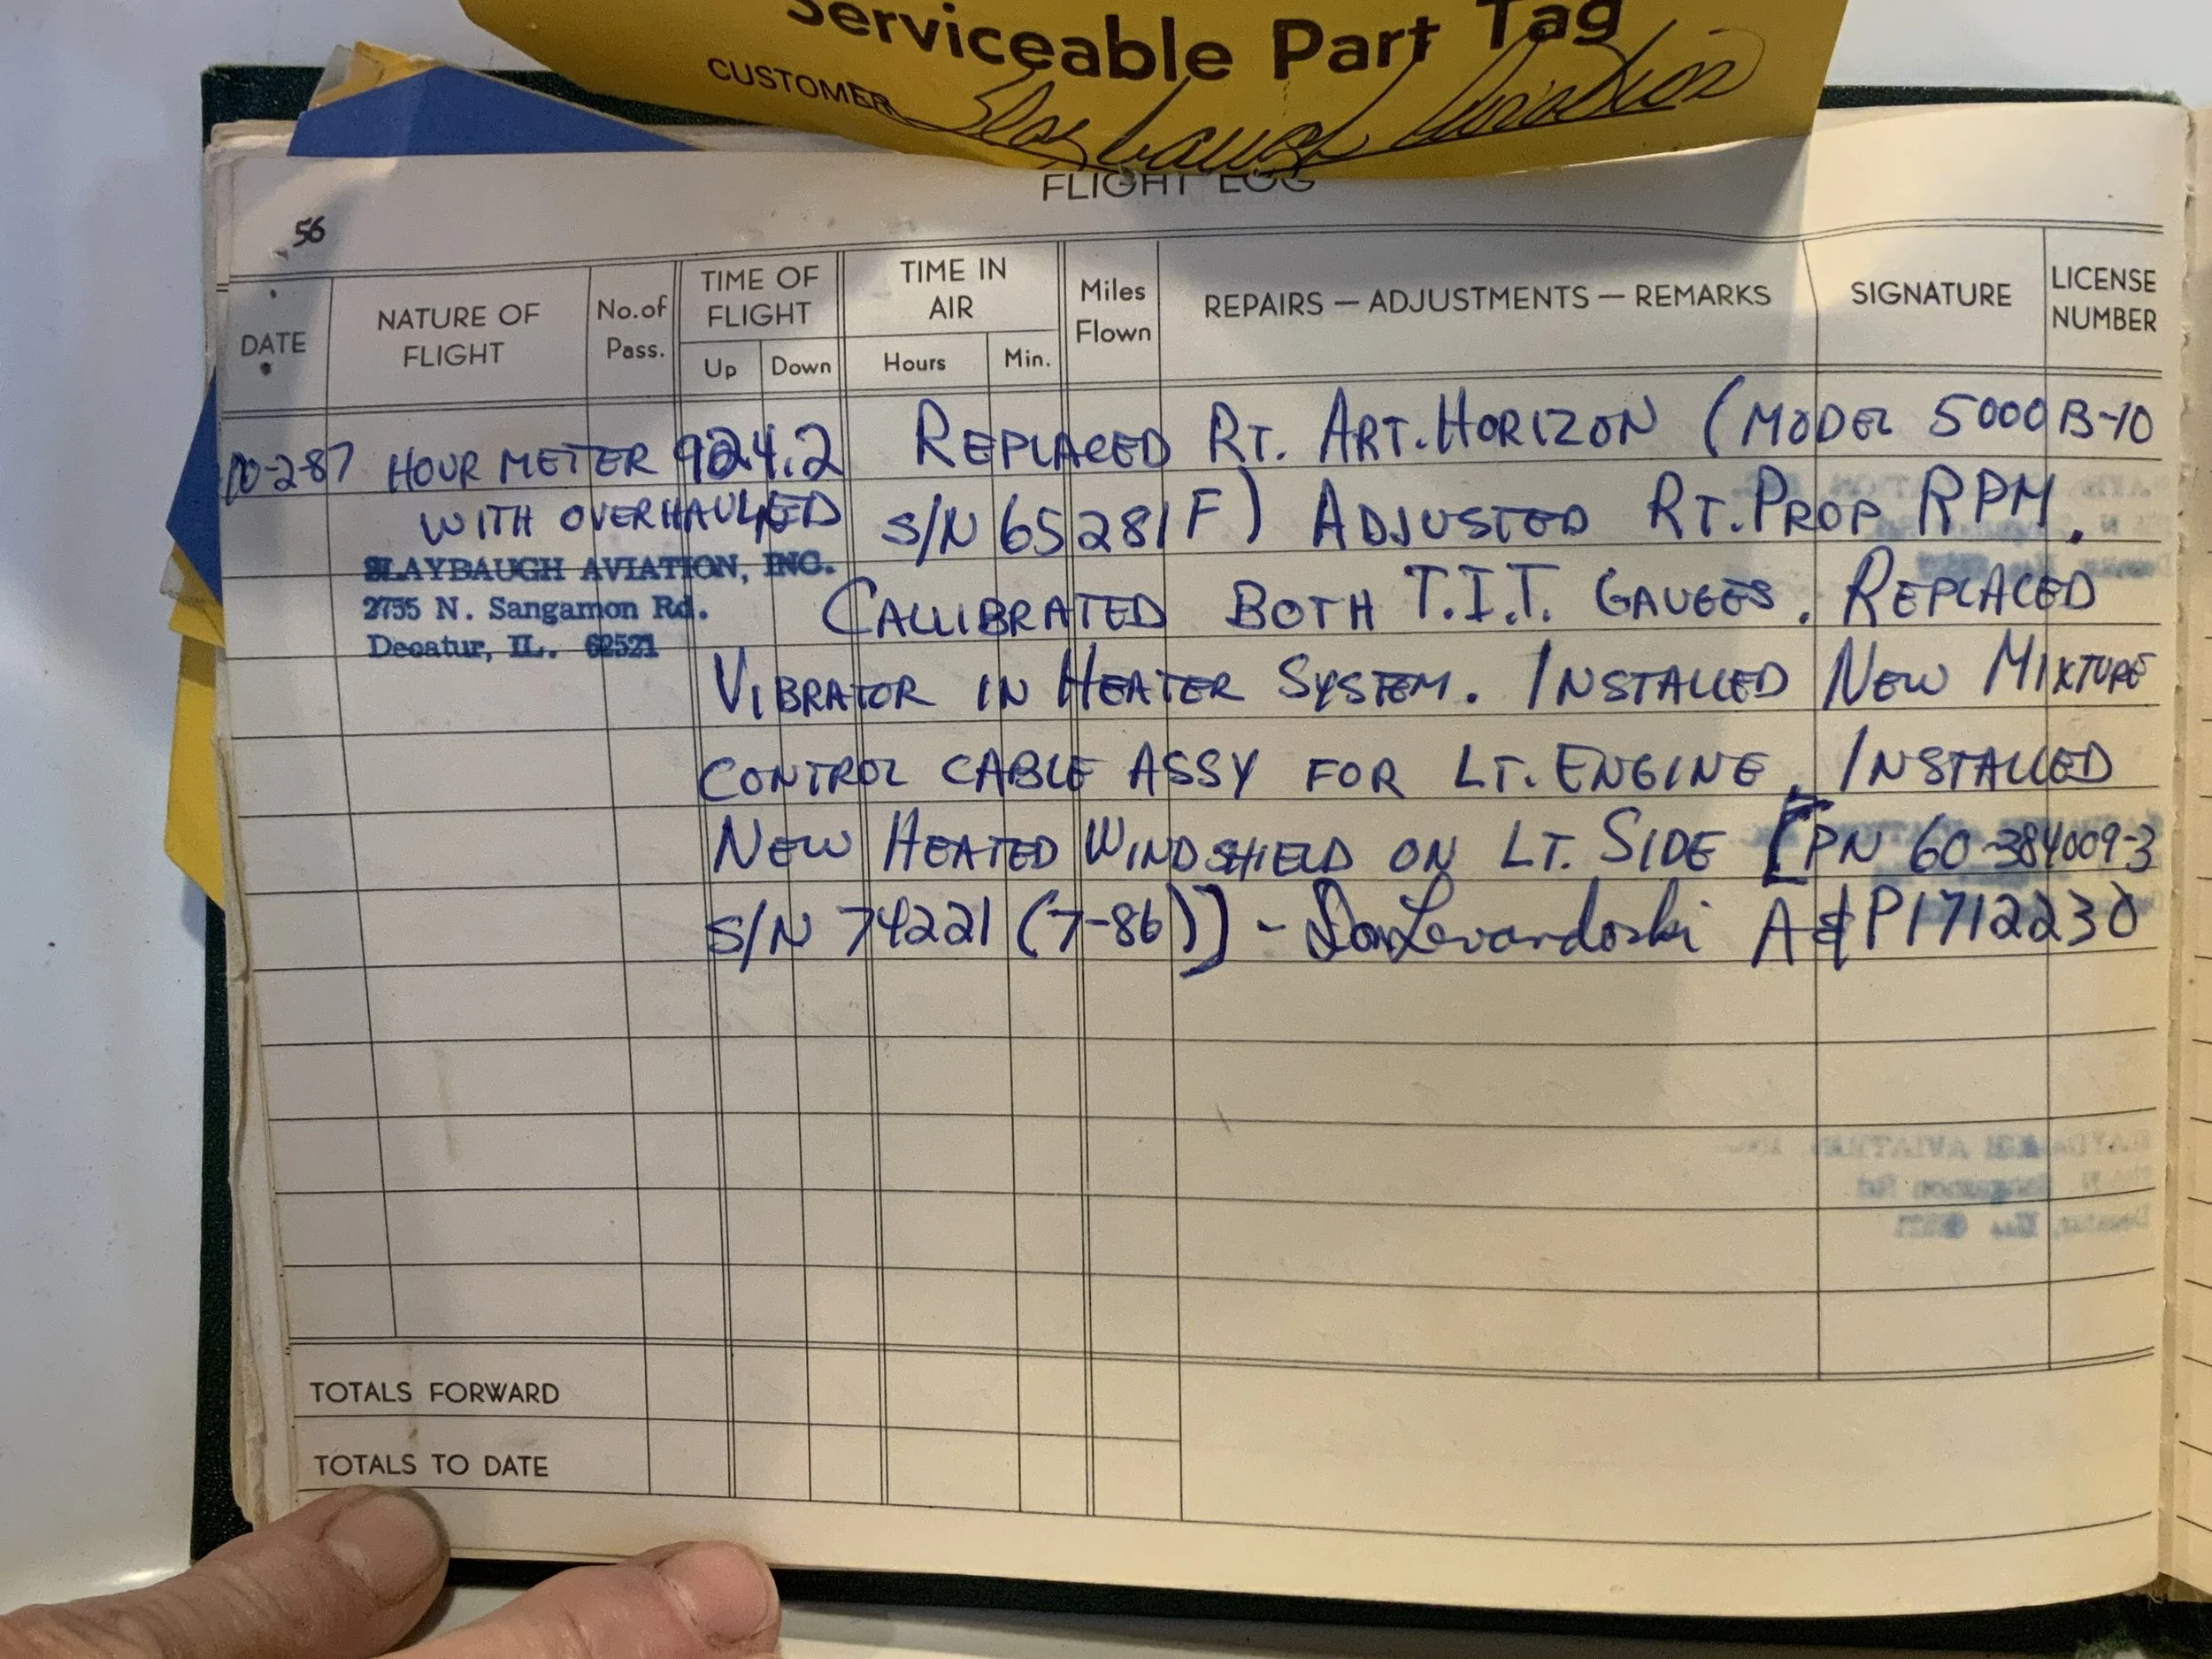 Serviceable Part Tag
CUSTOMER Slaybaugh Aviation
FLIGHT LOG
56
DATE
NATURE OF FLIGHT
No. of Pass.
TIME OF FLIGHT
Up
Down
TIME IN AIR
Hours
Min.
Miles Flown
REPAIRS — ADJUSTMENTS — REMARKS
SIGNATURE
LICENSE NUMBER
10-2-87 HOUR METER 924.2 REPLACED RT. ART. HORIZON (MODEL 5000 B-10
WITH OVERHAULED S/N 65281F) ADJUSTED RT. PROP RPM.
SLAYBAUGH AVIATION, INC.
2735 N. Sangamon Rd.
Decatur, IL. 62521
CALLIBRATED BOTH T.I.T. GAUGES. REPLACED
VIBRATOR IN HEATER SYSTEM. INSTALLED NEW MIXTURE
CONTROL CABLE ASSY FOR LT. ENGINE. INSTALLED
NEW HEATED WINDSHIELD ON LT. SIDE [PN 60-384009-3
S/N 74221 (7-86)] - Don Levandoski A&P 1712230
TOTALS FORWARD
TOTALS TO DATE